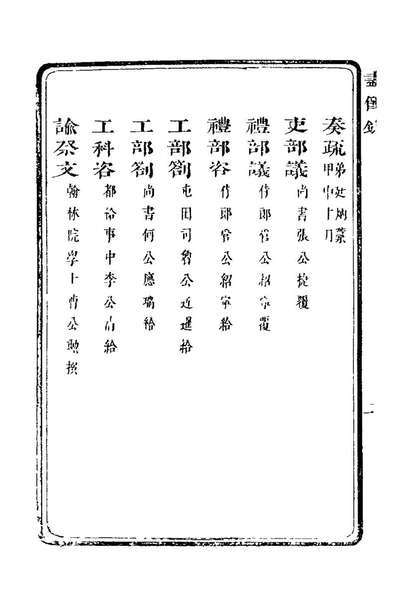 奏疏 甲申十月
吏部議 尚書張公捷覆
禮部議 侍郎管公紹寧覆
禮部咨 侍郎管公紹寧給
工部劄 屯田司魯公近暹給
工部劄 尚書何公應瑞給
工科咨 都給事中李公清給
諭祭文 翰林院學士曹公勳撰
二